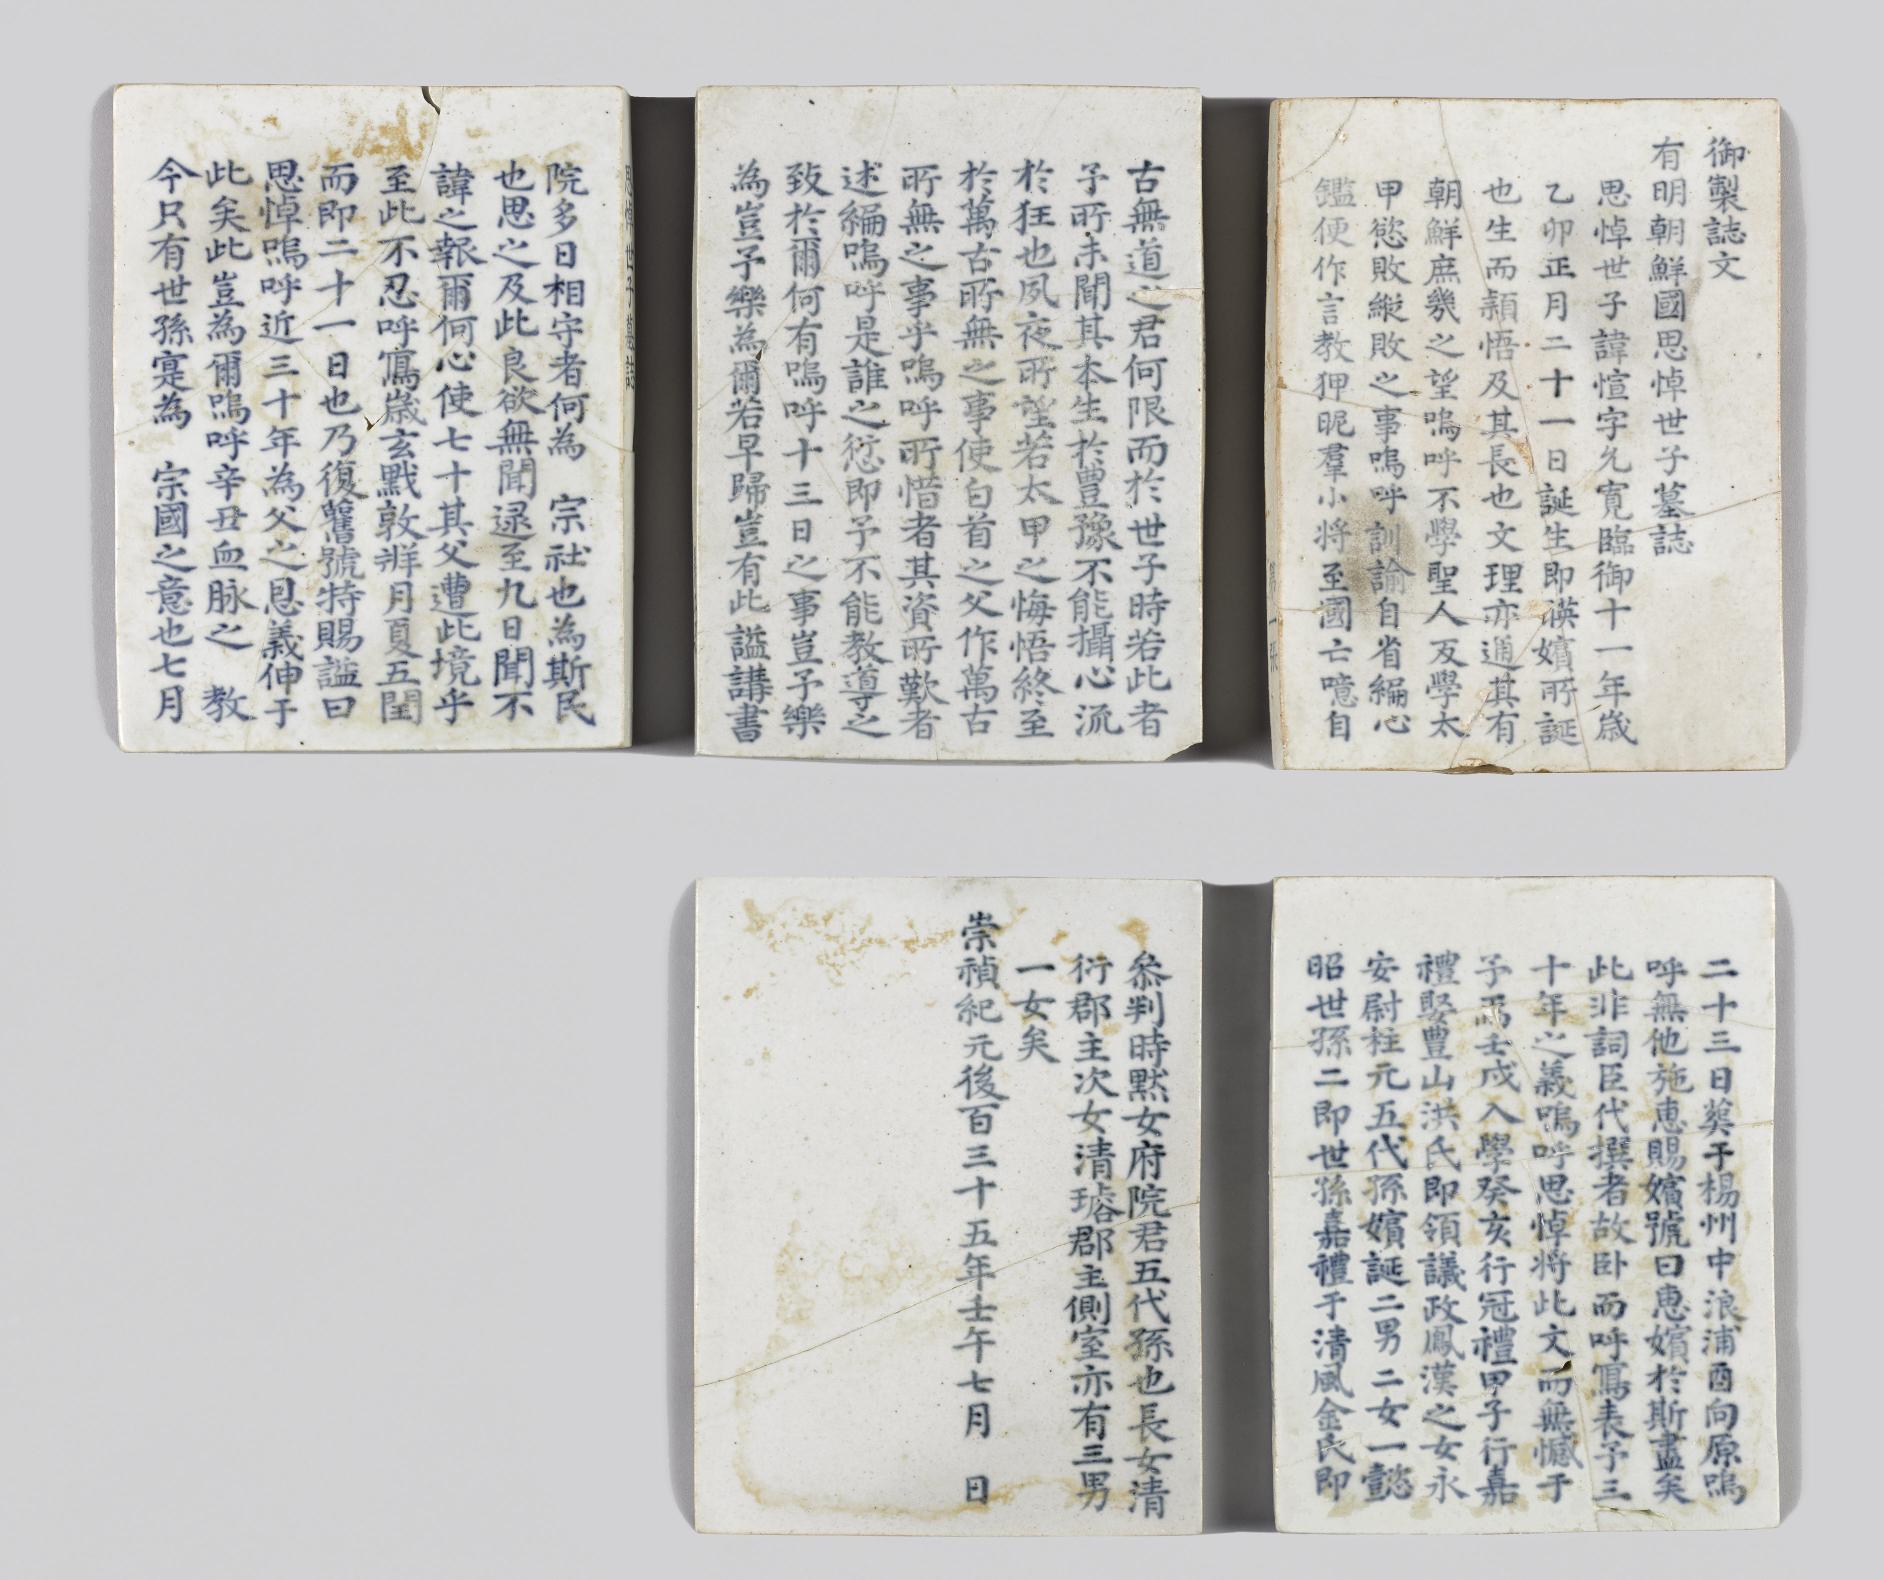 御製誌文
有明朝鮮國思悼世子墓誌
思悼世子諱愃字允寬臨御十一年歲
乙卯正月二十一日誕生即暎嬪所誕
也生而穎悟及其長也文理亦通其有
朝鮮庶幾之望嗚呼不學聖人反學太
甲慾敗縱敗之事嗚呼訓諭自省編心
鑑便作言教狎昵羣小將至國亡噫自
古無道之君何限而於世子時若此者
予所未聞其本生於豊豫不能攝心流
於狂也夙夜所望若太甲之悔悟終至
於萬古所無之事使白首之父作萬古
所無之事乎嗚呼所惜者其資所歎者
述編嗚呼是誰之愆即予不能教導之
致於爾何有嗚呼十三日之事豈予樂
為豈予樂為爾若早歸豈有此 謚講書
院多日相守者何為 宗社也為斯民
也思之及此良欲無聞逯至九日聞不
諱之報爾何心使七十其父遭此境乎
至此不忍呼寫歲玄黓敦牂月夏五閏
而即二十一日也乃復舊號特賜謚曰
思悼嗚呼近三十年為父之恩義伸于
此矣此豈為爾嗚呼辛丑血脉之 教
今只有世孫寔為 宗國之意也七月
思悼世子墓誌
二十三日葬于楊州中浪浦酉向原嗚
呼無他施惠賜嬪號曰惠嬪於斯盡矣
此非詞臣代撰者故卧而呼寫表予三
十年之義嗚呼思悼將此文而無憾于
予焉壬戌入學癸亥行冠禮甲子行嘉
禮娶豊山洪氏即領議政鳳漢之女永
安尉柱元五代孫嬪誕二男二女一懿
昭世孫二即世孫嘉禮于清風金氏即
叅判時默女府院君五代孫也長女清
衍郡主次女清璿郡主側室亦有三男
一女矣
崇禎紀元後百三十五年壬午七月 日